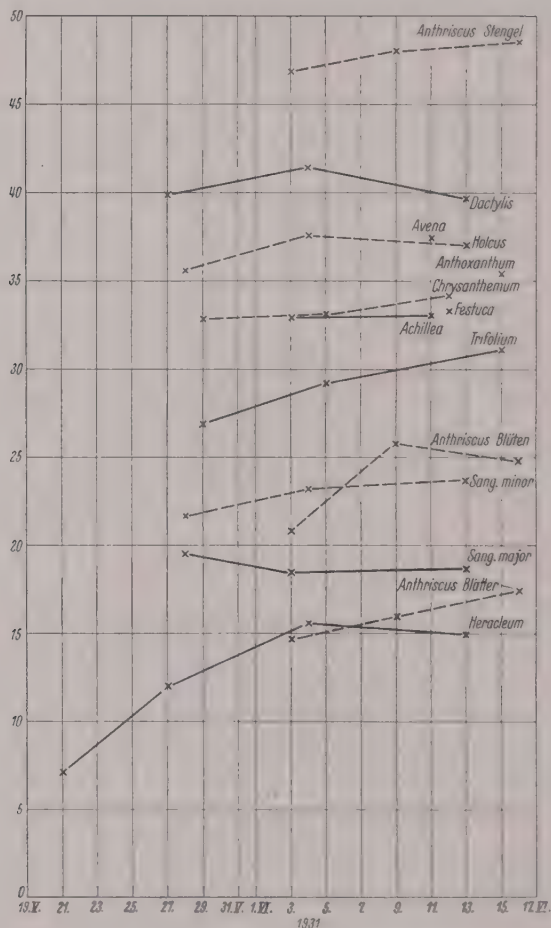 50
Anthriscus Stengel
45
40
Dactylis
Avena
Holcus
35
Anthoxanthum
Chrysanthemum
Festuca
Achillea
Trifolium
30
Anthriscus Blüten
25
Sang. minor
20
Sang. major
Anthriscus Blätter
15
Heracleum
10
5
0
19.V. 21. 23. 25. 27. 29. 31.V. 1.VI. 3. 5. 7. 9. 11. 13. 15. 17.VI.
1931